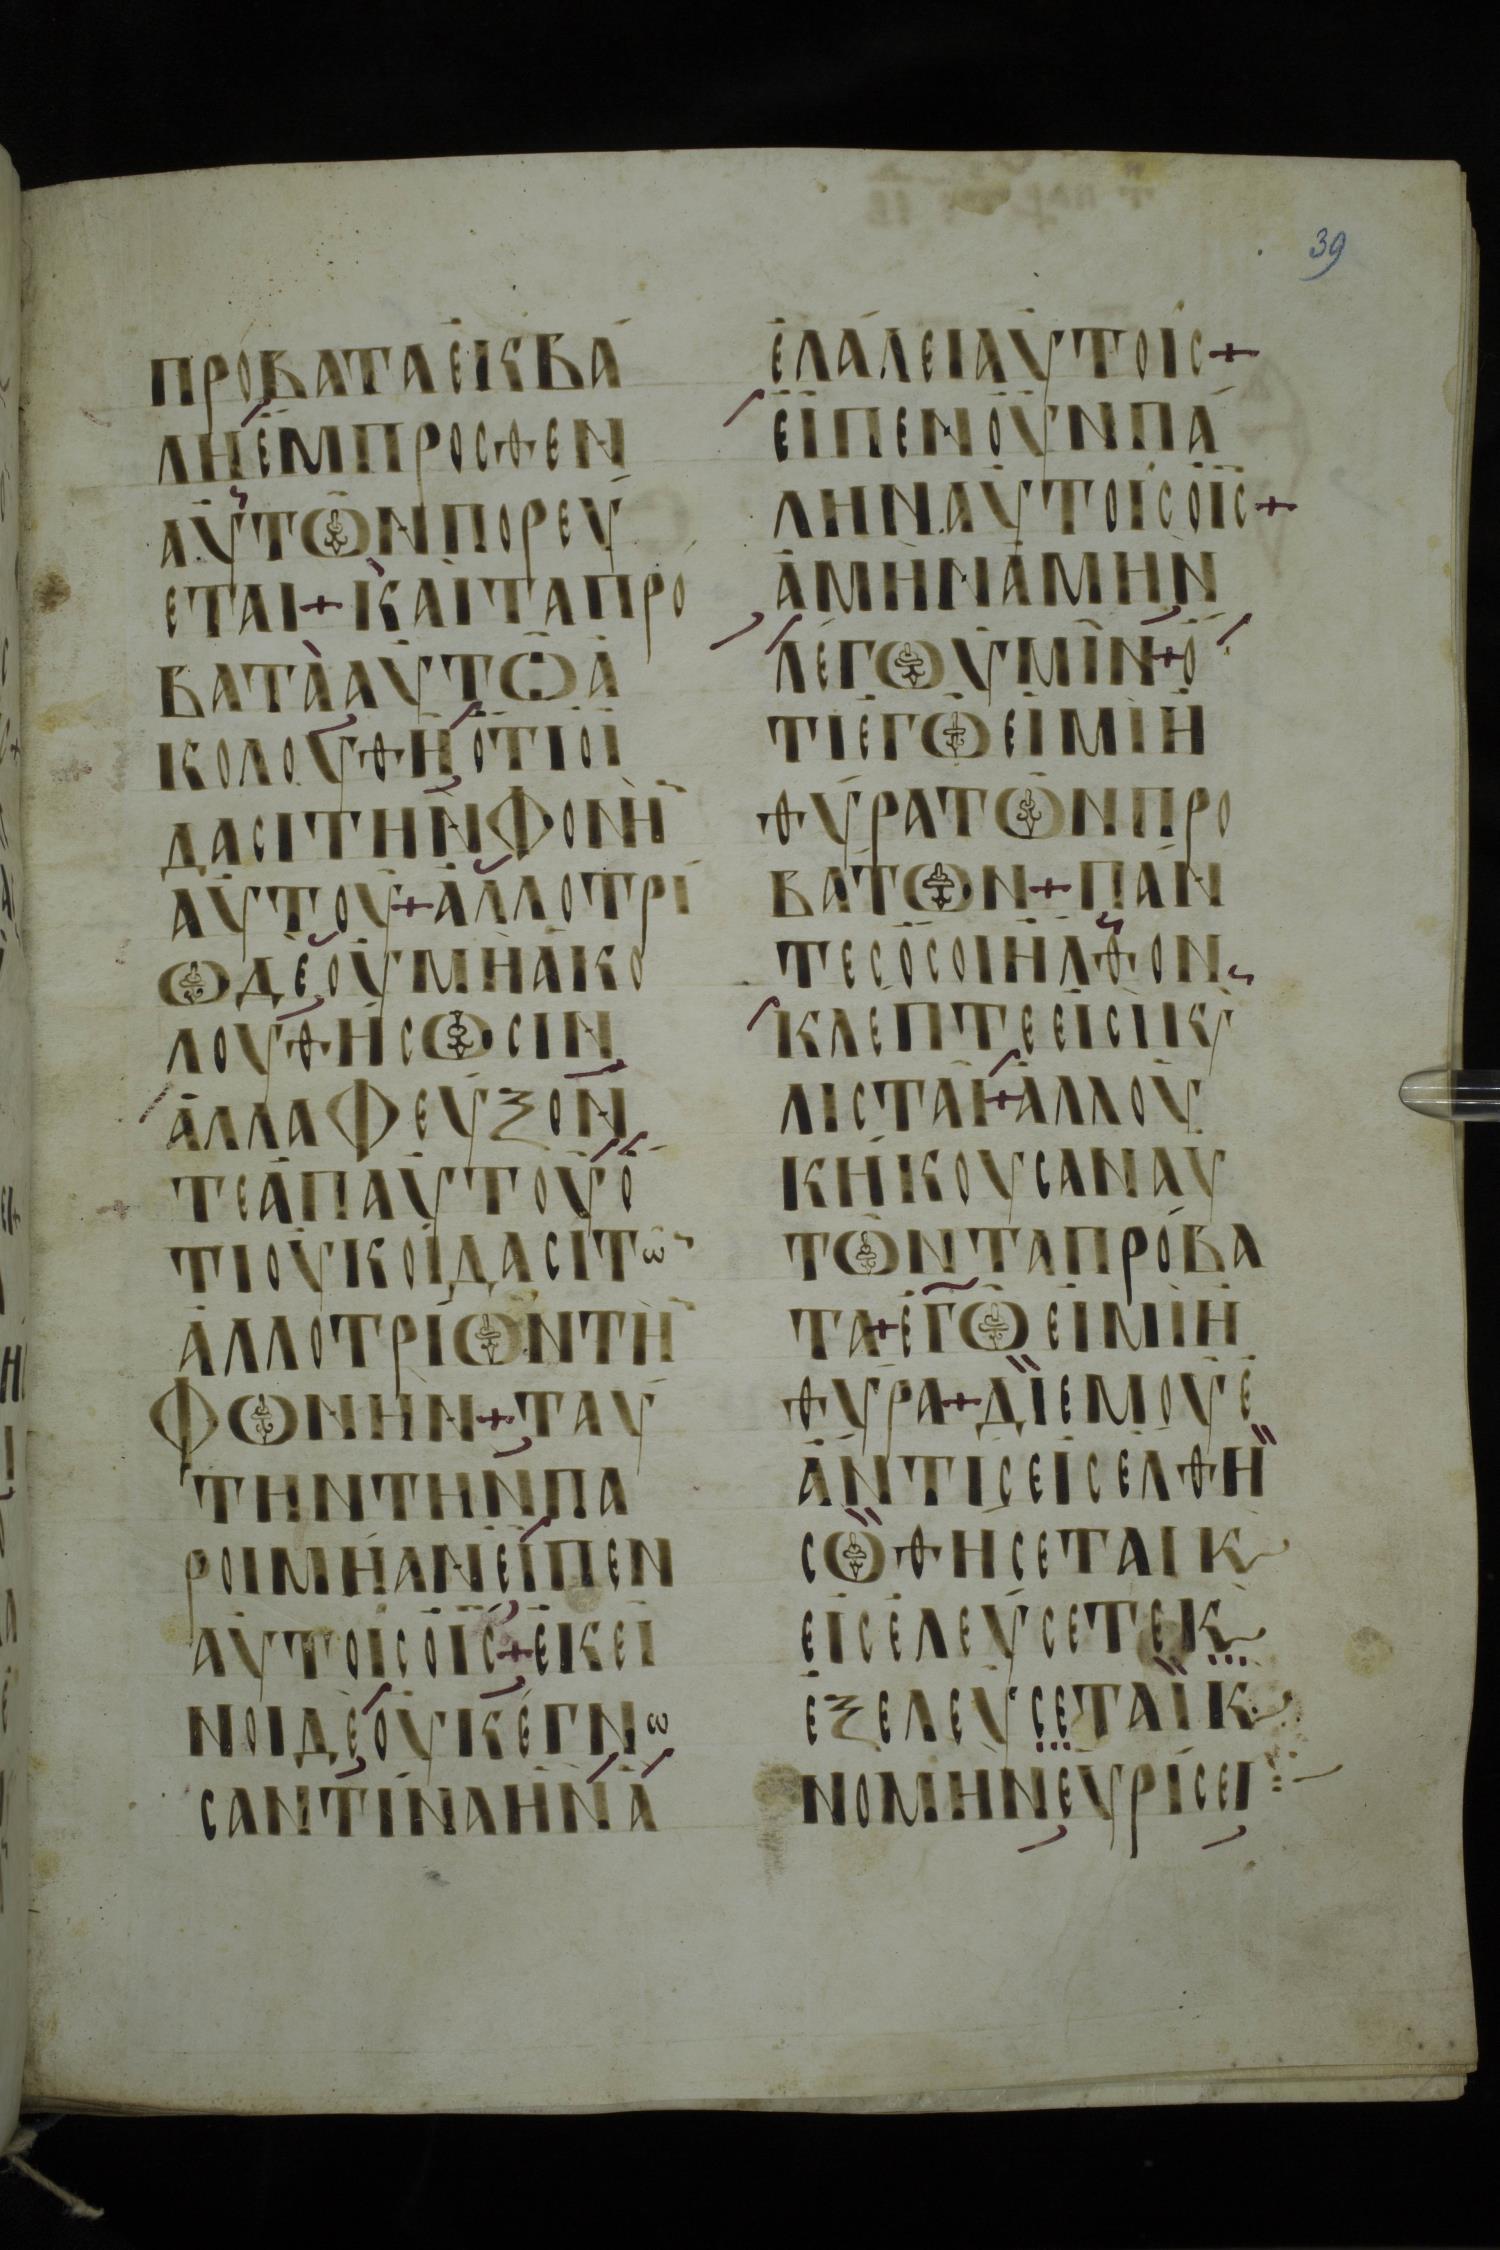 39
ΠΡΟΒΑΤΑΕΚΒΑ
ΛΗΕΜΠΡΟΣΘΕΝ
ΑΥΤΩΝΠΟΡΕΥ
ΕΤΑΙ+ΚΑΙΤΑΠΡΟ
ΒΑΤΑΑΥΤΩΑ
ΚΟΛΟΥΘΗΟΤΙΟΙ
ΔΑΣΙΤΗΝΦΟΝΗ
ΑΥΤΟΥ+ΑΛΛΟΤΡΙ
ΩΔΕΟΥΜΗΑΚΟ
ΛΟΥΘΗΣΩΣΙΝ
ΑΛΛΑΦΕΥΞΟΝ
ΤΕΑΠΑΥΤΟΥΟ
ΤΙΟΥΚΟΙΔΑΣΙΤΩ
ΑΛΛΟΤΡΙΩΝΤΗ
ΦΩΝΗΝ+ΤΑΥ
ΤΗΝΤΗΝΠΑ
ΡΟΙΜΗΑΝΕΙΠΕΝ
ΑΥΤΟΙΣΟΙΣ+ΕΚΕΙ
ΝΟΙΔΕΟΥΚΕΓΝΩ
ΣΑΝΤΙΝΑΗΝΑ
ΕΛΑΛΕΙΑΥΤΟΙΣ+
ΕΙΠΕΝΟΥΝΠΑ
ΛΗΝΑΥΤΟΙΣΟΙΣ+
ΑΜΗΝΑΜΗΝ
ΛΕΓΩΥΜΙΝ+Ο
ΤΙΕΓΩΕΙΜΙΗ
ΘΥΡΑΤΩΝΠΡΟ
ΒΑΤΩΝ+ΠΑΝ
ΤΕΣΟΣΟΙΗΛΘΟΝ
ΚΛΕΠΤΕΕΙΣΙΚ
ΛΙΣΤΑΙ+ΑΛΛΟΥ
ΚΗΚΟΥΣΑΝΑΥ
ΤΩΝΤΑΠΡΟΒΑ
ΤΑ+ΕΓΩΕΙΜΙΗ
ΘΥΡΑ+ΔΙΕΜΟΥΕ
ΑΝΤΙΣΕΙΣΕΛΘΗ
ΣΩΘΗΣΕΤΑΙΚ
ΕΙΣΕΛΕΥΣΕΤΕΚ
ΕΞΕΛΕΥΣΕΤΑΙΚ
ΝΟΜΗΝΕΥΡΙΣΕΙ